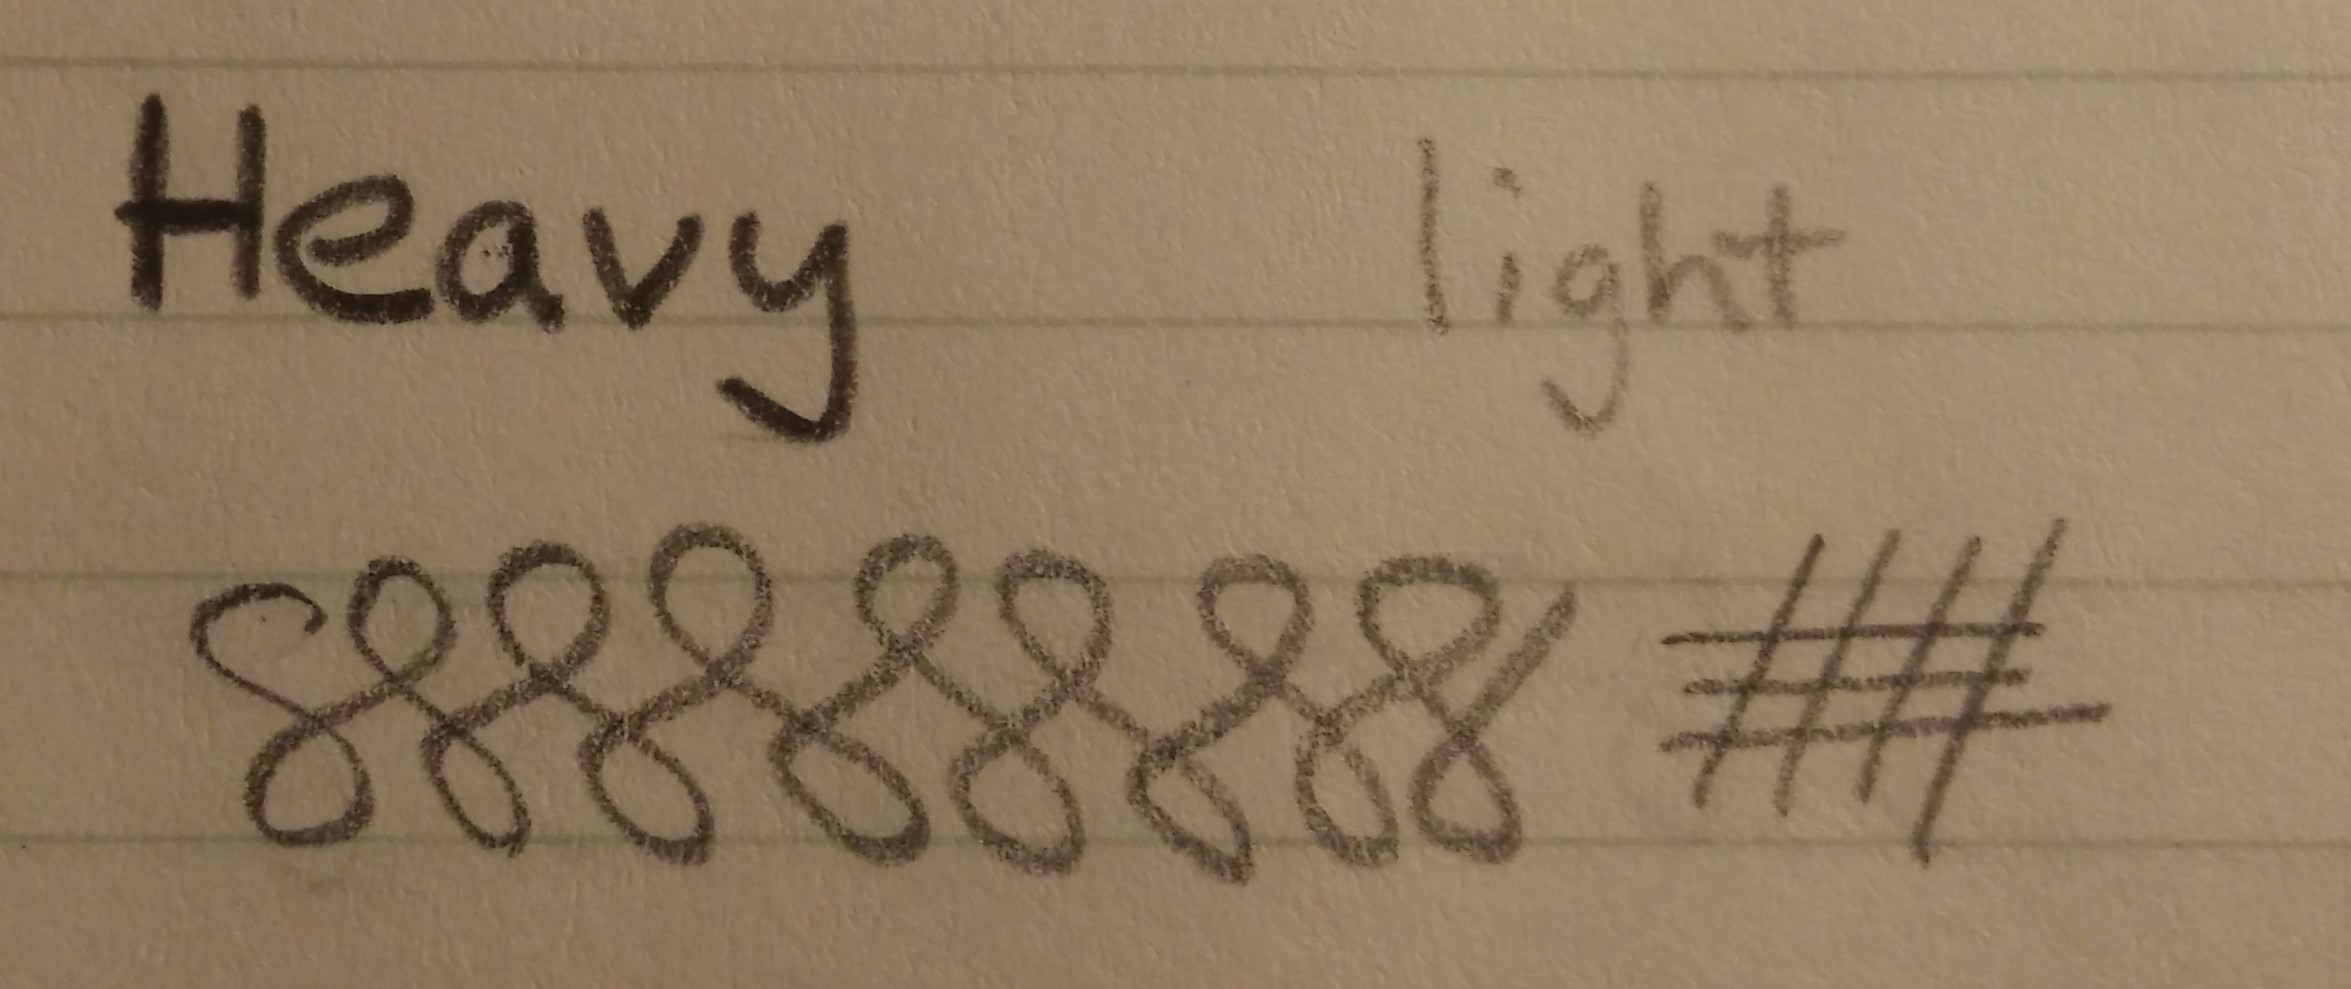 Heavy light